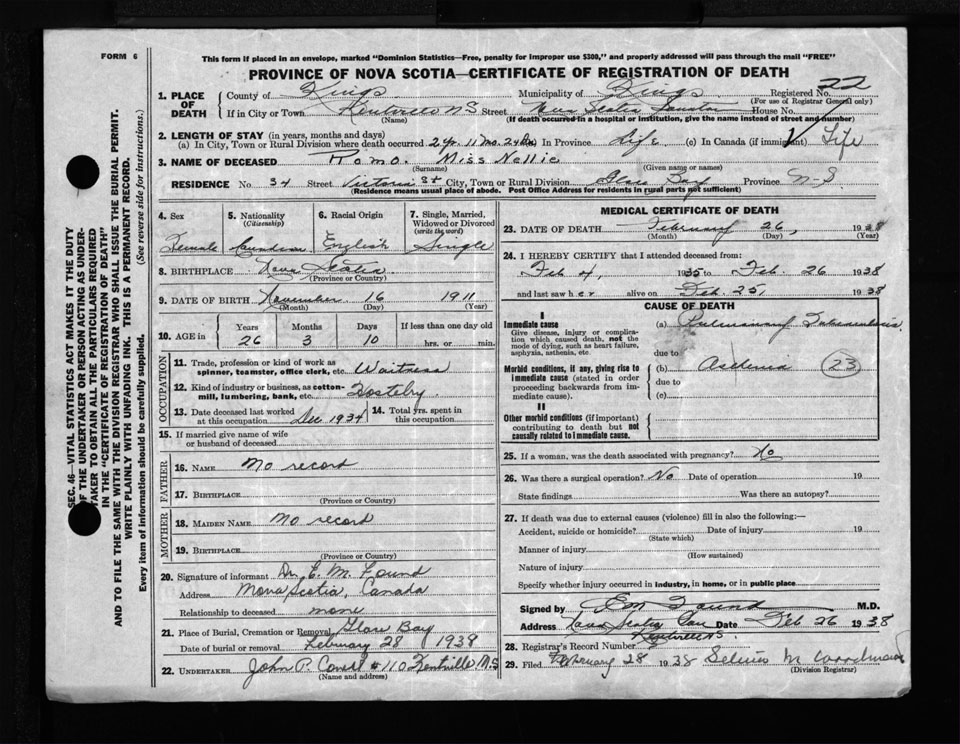 FORM 6
This form if placed in an envelope, marked "Dominion Statistics—Free, penalty for improper use $300," and properly addressed will pass through the mail "FREE"
PROVINCE OF NOVA SCOTIA—CERTIFICATE OF REGISTRATION OF DEATH
22
1. PLACE OF DEATH
County of Kings Municipality of Kings Registered No.
(For use of Registrar General only)
If in City or Town Kentville N S Street Nova Scotia House No.
(Name) (If death occurred in a hospital or institution, give the name instead of street and number)
2. LENGTH OF STAY (in years, months and days)
(a) In City, Town or Rural Division where death occurred 2 yr. 11 Mo. 24 In Province Life (c) In Canada (if immigrant) Life
3. NAME OF DECEASED Romo. Miss Nellie
(Surname) (Given name or names)
RESIDENCE No. 34 Street Victoria St City, Town or Rural Division Glace Bay Province N-S.
(Residence means usual place of abode. Post Office Address for residents in rural parts not sufficient)
SEC. 46—VITAL STATISTICS ACT MAKES IT THE DUTY
OF THE UNDERTAKER OR PERSON ACTING AS UNDER-
TAKER TO OBTAIN ALL THE PARTICULARS REQUIRED
IN THE "CERTIFICATE OF REGISTRATION OF DEATH"
AND TO FILE THE SAME WITH THE DIVISION REGISTRAR WHO SHALL ISSUE THE BURIAL PERMIT.
WRITE PLAINLY WITH UNFADING INK. THIS IS A PERMANENT RECORD.
Every item of information should be carefully supplied. (See reverse side for instructions.)
4. Sex 5. Nationality (Citizenship) 6. Racial Origin 7. Single, Married, Widowed or Divorced (write the word)
Female Canadian English Single
8. BIRTHPLACE Nova Scotia
(Province or Country)
9. DATE OF BIRTH November 16 1911
(Month) (Day) (Year)
10. AGE in Years Months Days If less than one day old
26 3 10 hrs. or min.
OCCUPATION
11. Trade, profession or kind of work as
spinner, teamster, office clerk, etc. Waitress
12. Kind of industry or business, as cotton-
mill, lumbering, bank, etc.
13. Date deceased last worked at this occupation Dec. 1934 14. Total yrs. spent in this occupation
15. If married give name of wife
or husband of deceased
FATHER
16. NAME No record
17. BIRTHPLACE
(Province or Country)
MOTHER
18. MAIDEN NAME No record
19. BIRTHPLACE
(Province or Country)
20. Signature of informant Dr. E. M. Found
Address Nova Scotia, Canada
Relationship to deceased none
21. Place of Burial, Cremation or Removal Glace Bay
Date of burial or removal February 28 1938
22. UNDERTAKER John P. #110 Kentville N.S
(Name and address)
MEDICAL CERTIFICATE OF DEATH
23. DATE OF DEATH February 26, 1938
(Month) (Day) (Year)
24. I HEREBY CERTIFY that I attended deceased from:
Feb 4, 1935 to Feb. 26 1938
and last saw h er alive on Feb. 25, 1938
CAUSE OF DEATH
I
Immediate cause
Give disease, injury or complica-
tion which caused death, not the
mode of dying, such as heart failure,
asphyxia, asthenia, etc
(a) Pulmonary Tuberculosis
due to
Morbid conditions, if any, giving rise to
immediate cause (stated in order
proceeding backwards from im-
mediate cause).
(b) Asthenia 23
due to
(c)
II
Other morbid conditions (if important)
contributing to death but not
causally related to immediate cause.
25. If a woman, was the death associated with pregnancy? No
26. Was there a surgical operation? No Date of operation 19
State findings Was there an autopsy?
27. If death was due to external causes (violence) fill in also the following:—
Accident, suicide or homicide? Date of injury 19
(State which)
Manner of injury
(How sustained)
Nature of injury
Specify whether injury occurred in industry, in home, or in public place
Signed by E M Found M.D.
Address Nova Scotia San Date Feb 26 1938
Kentville NS.
28. Registrar's Record Number
29. Filed February 28 1938
(Division Registrar)